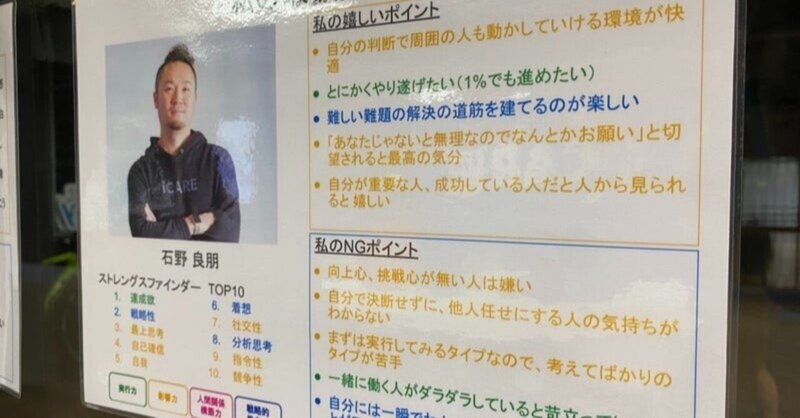 私の嬉しいポイント
● 自分の判断で周囲の人も動かしていける環境が快
適
● とにかくやり遂げたい(1%でも進めたい)
● 難しい難題の解決の道筋を建てるのが楽しい
● 「あなたじゃないと無理なのでなんとかお願い」と切
望されると最高の気分
● 自分が重要な人、成功している人だと人から見られ
ると嬉しい
iCARE
石野 良朋
ストレングスファインダー TOP10
1. 達成欲
2. 戦略性
3. 最上志向
4. 自己確信
5. 自我
6. 着想
7. 社交性
8. 分析思考
9. 指令性
10. 競争性
実行力
影響力
人間関係
構築力
戦略的
私のNGポイント
● 向上心、挑戦心が無い人は嫌い
● 自分で決断せずに、他人任せにする人の気持ちが
わからない
● まずは実行してみるタイプなので、考えてばかりの
タイプが苦手
● 一緒に働く人がダラダラしていると苛立って
● 自分には一瞬で